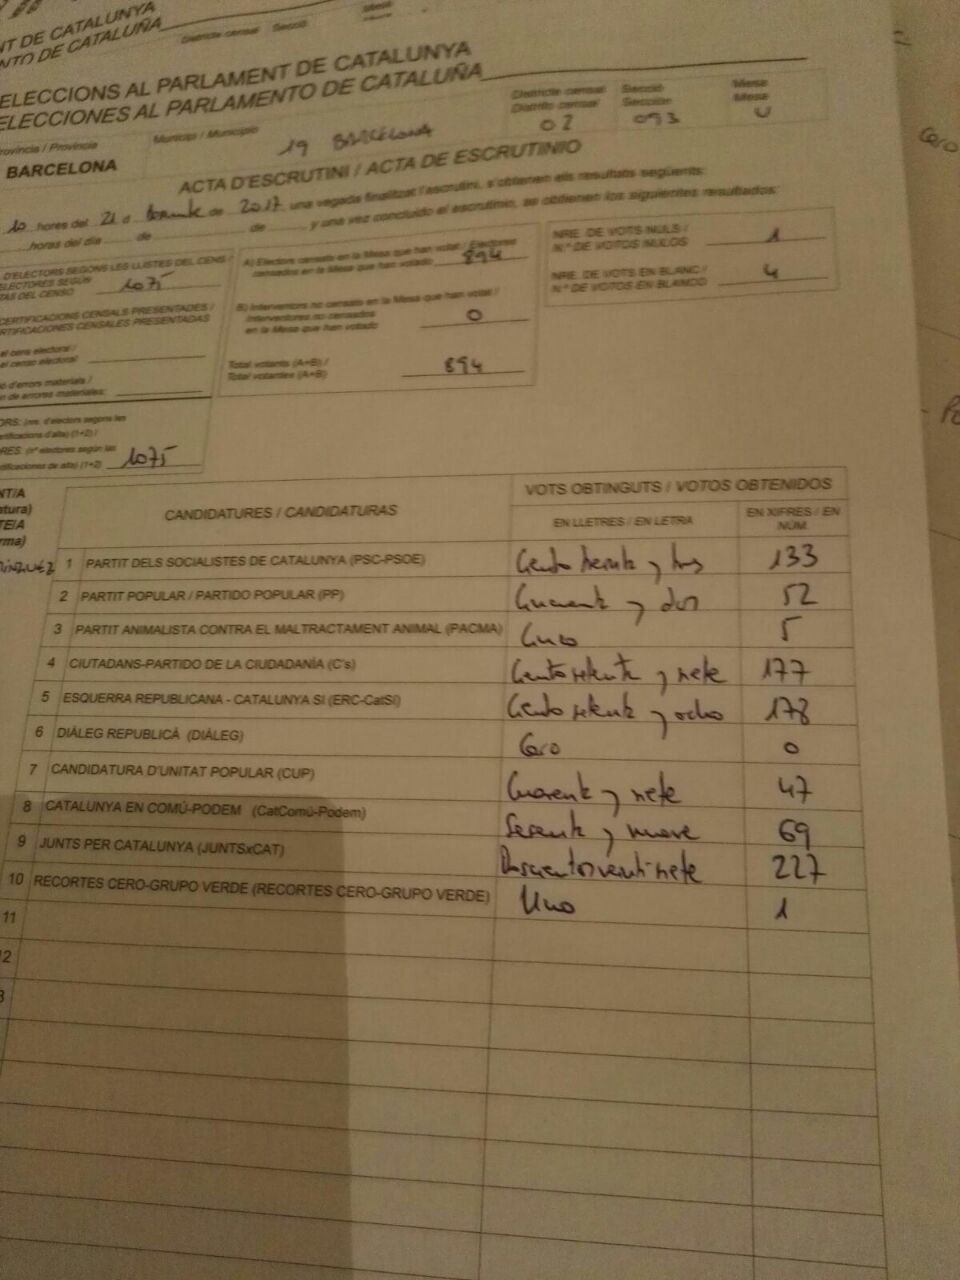 NT DE CATALUNYA
NTO DE CATALUÑA
Districte censal Secció Mesa
ELECCIONS AL PARLAMENT DE CATALUNYA
ELECCIONES AL PARLAMENTO DE CATALUÑA
Districte censal Secció Mesa
Distrito censal Sección Mesa
02 093 U
rovíncia / Provincia Municipi / Municipio
BARCELONA 19 BARCELONA
ACTA D'ESCRUTINI / ACTA DE ESCRUTINIO
10 hores del 21 d de 2017 una vegada finalitzat l'escrutini, s'obtenen els resultats següents:
horas del día de de y una vez concluido el escrutinio, se obtienen los siguientes resultados:
D'ELECTORS SEGONS LES LLISTES DEL CENS /
ELECTORES SEGÚN
TAS DEL CENSO 1075
CERTIFICACIONS CENSALS PRESENTADES /
RTIFICACIONES CENSALES PRESENTADAS
el cens electoral /
el censo electoral
ó d'errors materials /
n de errores materiales:
ORS: (nre. d'electors segons les
rtificacions d'alta) (1+2) /
RES: (nº electores según las
rtificaciones de alta) (1+2) 1075
A) Electors censats en la Mesa que han votat / Electores
censados en la Mesa que han votado 894
B) Interventors no censats en la Mesa que han votat /
Interventores no censados
en la Mesa que han votado 0
Total votants (A+B) /
Total votantes (A+B) 894
NRE. DE VOTS NULS /
N.º DE VOTOS NULOS 1
NRE. DE VOTS EN BLANC /
N.º DE VOTOS EN BLANCO 4
NT/A
atura)
TE/A
rma)
CANDIDATURES / CANDIDATURAS
VOTS OBTINGUTS / VOTOS OBTENIDOS
EN LLETRES / EN LETRA
EN XIFRES / EN NÚM.
1 PARTIT DELS SOCIALISTES DE CATALUNYA (PSC-PSOE) Ciento treinta y tres 133
2 PARTIT POPULAR / PARTIDO POPULAR (PP) Cincuenta y dos 52
3 PARTIT ANIMALISTA CONTRA EL MALTRACTAMENT ANIMAL (PACMA) Cinco 5
4 CIUTADANS-PARTIDO DE LA CIUDADANÍA (C's) Ciento setenta y siete 177
5 ESQUERRA REPUBLICANA - CATALUNYA SI (ERC-CatSí) Ciento setenta y ocho 178
6 DIÀLEG REPUBLICÀ (DIÀLEG) Cero 0
7 CANDIDATURA D'UNITAT POPULAR (CUP) Cuarenta y siete 47
8 CATALUNYA EN COMÚ-PODEM (CatComú-Podem) Sesenta y nueve 69
9 JUNTS PER CATALUNYA (JUNTSxCAT) Doscientos veintisiete 227
10 RECORTES CERO-GRUPO VERDE (RECORTES CERO-GRUPO VERDE) Uno 1
11
12
3
Cero